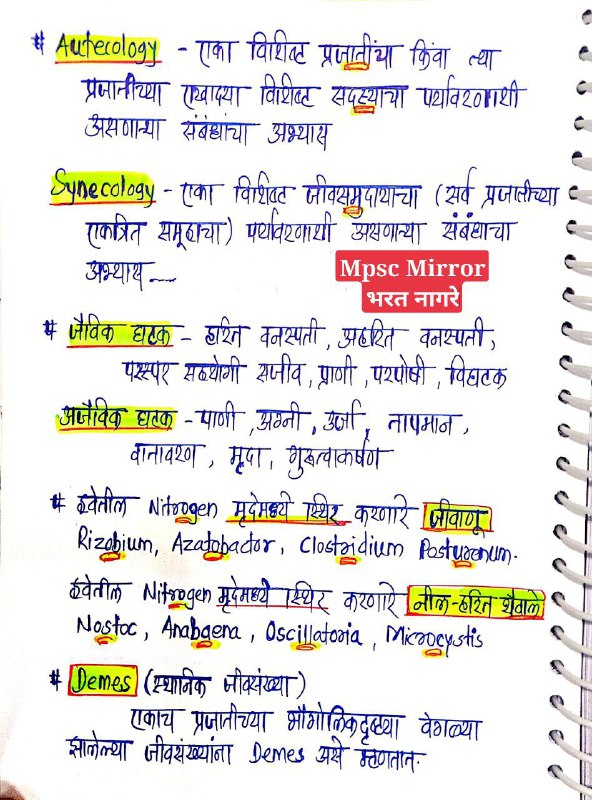 # Autecology - एका विशिष्ट प्रजातींचा किंवा त्या
प्रजातीच्या एखाद्या विशिष्ट सदस्याचा पर्यावरणाशी
असणाऱ्या संबंधांचा अभ्यास
Synecology - एका विशिष्ट जीवसमुदायाचा (सर्व प्रजातीच्या
एकत्रित समूहाचा) पर्यावरणाशी असणाऱ्या संबंधाचा
अभ्यास
Mpsc Mirror
भरत नागरे
# जैविक घटक - हरित वनस्पती, अहरित वनस्पती,
परस्पर सहयोगी सजीव, प्राणी, परपोषी, विघटक
अजैविक घटक - पाणी, अग्नी, उर्जा, तापमान,
वातावरण, मृदा, गुरुत्वाकर्षण
# हवेतील Nitrogen मृदेमध्ये स्थिर करणारे जीवाणू
Rizobium, Azatobactor, Clostridium Posturanum.
हवेतील Nitrogen मृदेमध्ये स्थिर करणारे नील-हरित शैवाले
Nostoc, Anabgena, Oscillatoria, Microcystis
# Demes (स्थानिक जीवसंख्या)
एकाच प्रजातीच्या भौगोलिकदृष्ट्या वेगळ्या
झालेल्या जीवसंख्यांना Demes असे म्हणतात.